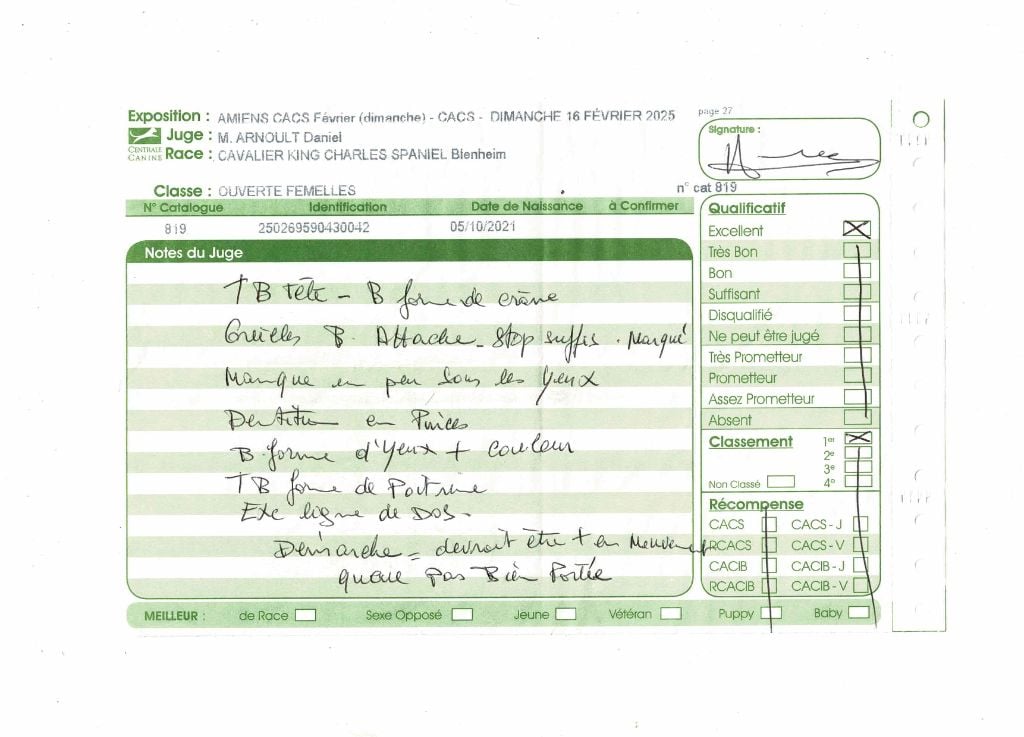 Exposition : AMIENS CACS Février (dimanche) - CACS - DIMANCHE 16 FÉVRIER 2025
page 27
CENTRALE CANINE
Juge : M. ARNOULT Daniel
Race : CAVALIER KING CHARLES SPANIEL Blenheim
Signature :
Classe : OUVERTE FEMELLES
n° cat 819
N° Catalogue Identification Date de Naissance à Confirmer
819 250269590430042 05/10/2021
Notes du Juge
TB Tête - B forme de crâne
Oreilles B. Attache - Stop suffis. Marqué
Manque un peu sous les yeux
Dentition en Pinces
B. forme d'Yeux + couleur
TB forme de Poitrine
Exc ligne de DOS.
Démarche = devrait être + en Mouvement
queue pas Bien Portée
Qualificatif
Excellent
Très Bon
Bon
Suffisant
Disqualifié
Ne peut être jugé
Très Prometteur
Prometteur
Assez Prometteur
Absent
Classement 1er
2e
3e
Non Classé 4e
Récompense
CACS CACS - J
RCACS CACS - V
CACIB CACIB - J
RCACIB CACIB - V
MEILLEUR : de Race Sexe Opposé Jeune Vétéran Puppy Baby